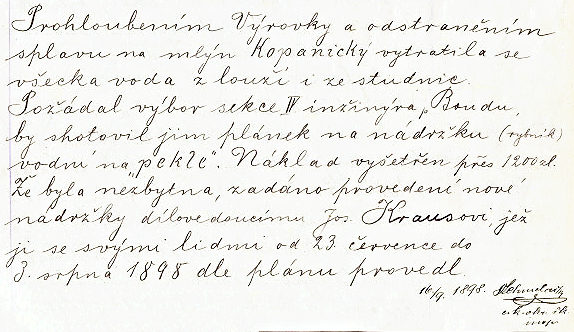 Prohloubením Výrovky a odstraněním
splavu na mlýn Kopanický vytratila se
všecka voda z louží i ze studnic.
Požádal výbor sekce IV inžinýra „Boudu,
by shotovil jim plánek na nádržku (rybník)
vodní na „pekle“. Náklad vyšetřen přes 1200 zl.
Že byla nezbytna, zadáno provedení nové
nádržky dílovedoucímu Jos. Krausovi, jež
ji se svými lidmi od 23. července do
3. srpna 1898 dle plánu provedl.
16/9. 1898.